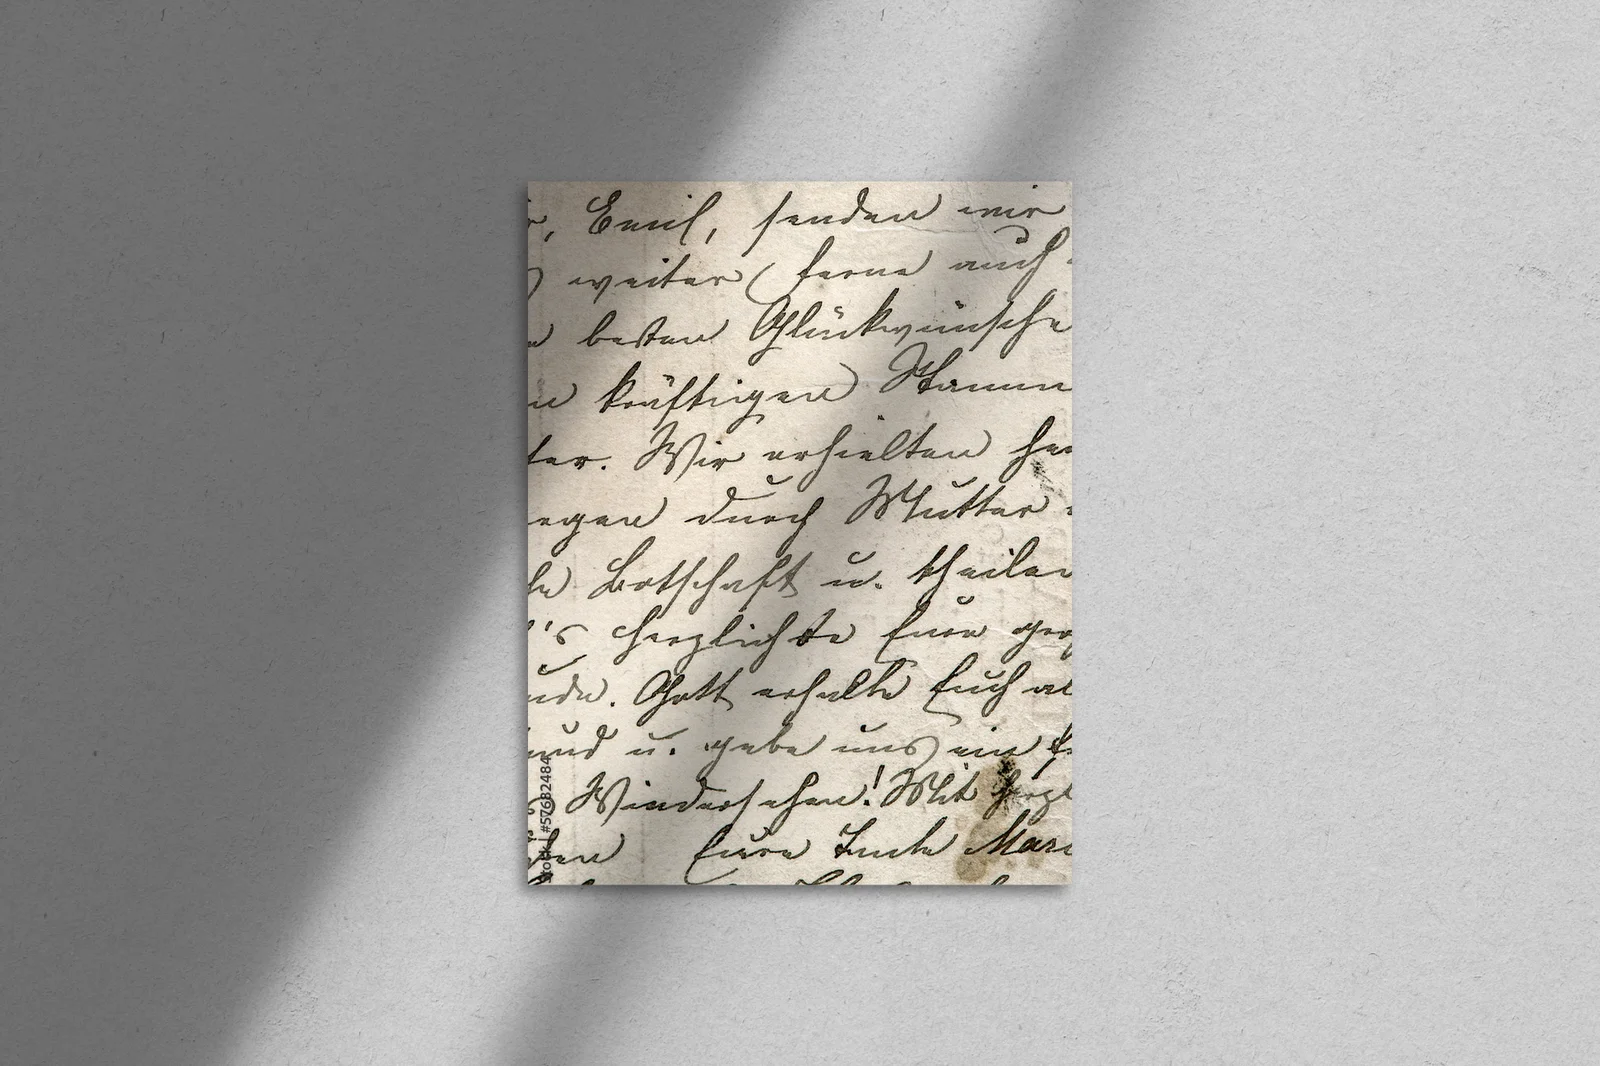 r, Emil, senden wir
weiter (ferne auch
n besten Glückwünsche
n kräftigen Stamm
ter. Wir erhielten her
egen durch Mutter
he Botschaft u. theilen
's herzlichste Eure gro
ude. Gott erhalte Euch al
sund u. gebe uns ein f
s Wiedersehen! Mit herzl
ßen Eure Tante Mari
tock | #57682484